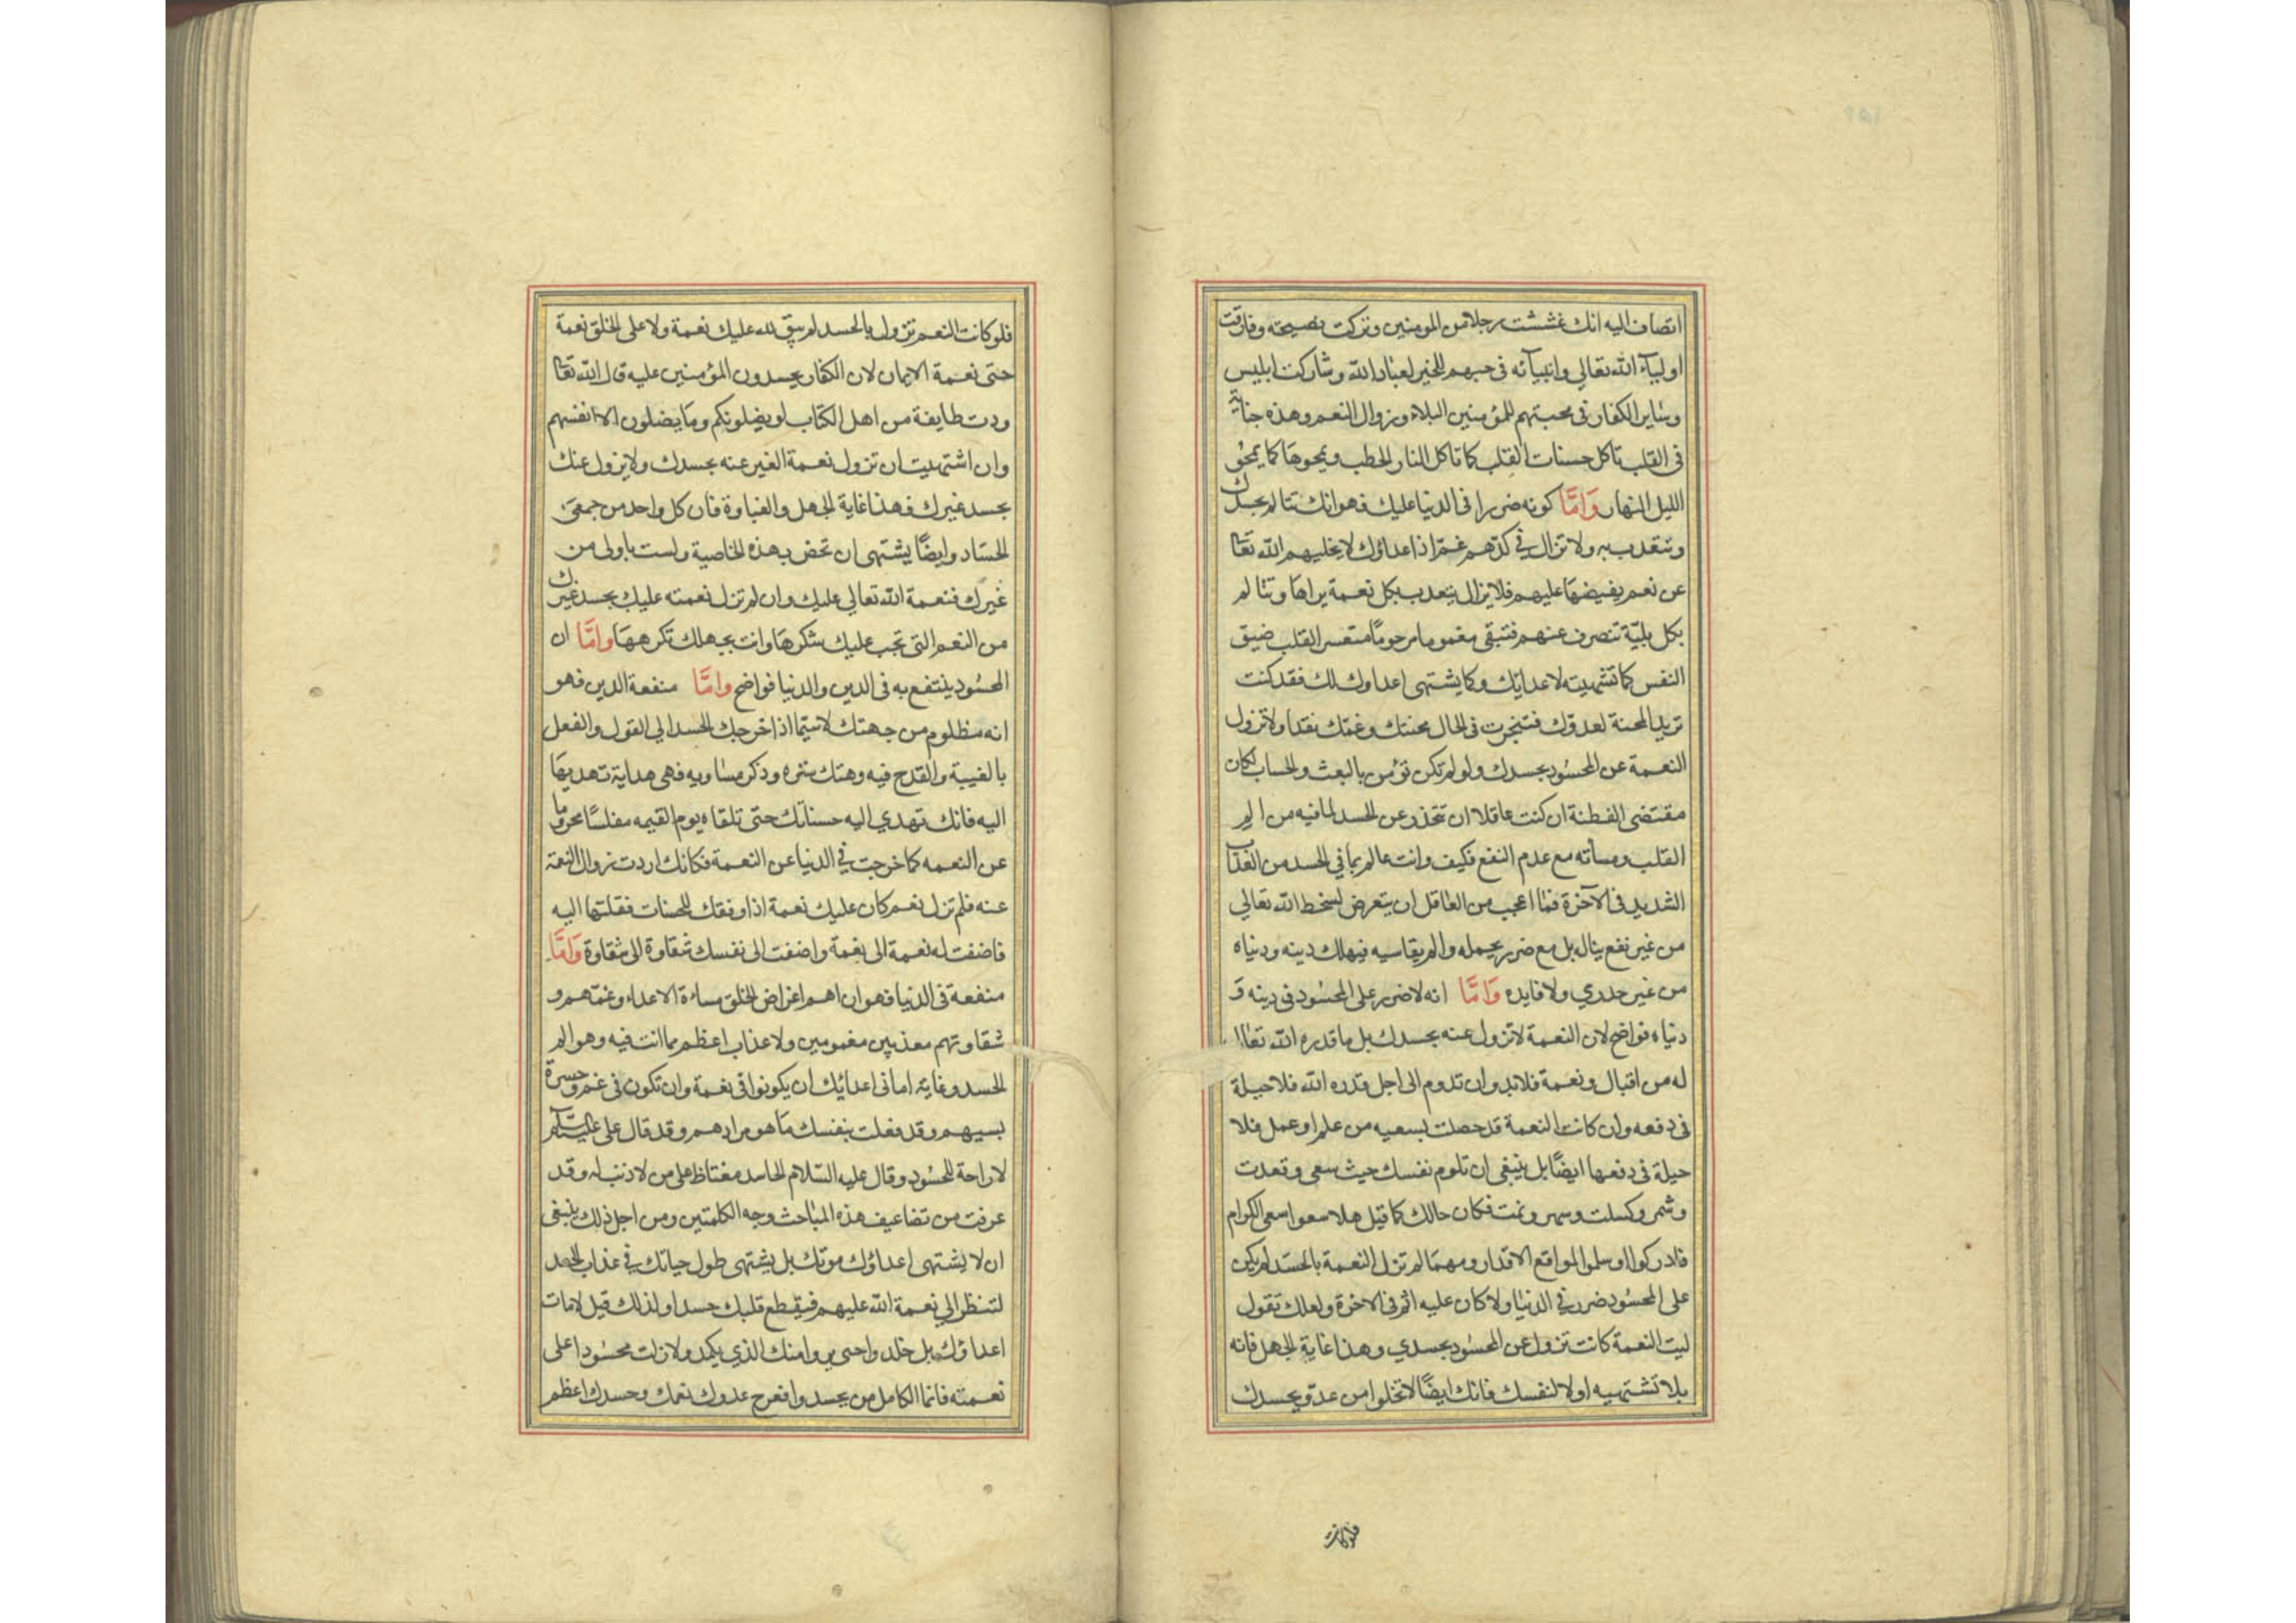 انضاف اليه انك غششت رجلا من المومنين وتركت نصيحته وفارقت
اولياء الله تعالى وانبيائه فى حبهم للخير لعباد الله وشاركت ابليس
وساير الكفار فى محبتهم للمؤمنين البلاء وزوال النعم وهذه جناية
فى القلب تاكل حسنات القلب كما تاكل النار الحطب ويمحوها كما يمحو
الليل النهار وَامَّا كونه ضررا فى الدنيا عليك فهو انك تتالم بحسدك
وتتعذب به ولا تزال في كدّ هم غمّ اذ اعداؤك لا يخليهم الله تعا
عن نعم يفيضها عليهم فلا يزال يتعذب بكل نعمة يراها وتتالم
بكل بليّة تنصرف عنهم فتبقى مغموما مرحومًا متعسر القلب ضيق
النفس كما تشتهيته لاعدايك وكما يشتهى اعداوك لك فقد كنت
تريد المحنة لعدوّك فتنجزت فى الحال محنتك وغمّك نقدا ولا تزول
النعمة عن المحسُود بحسدك ولو لم تكن تؤمن بالبعث والحساب لكان
مقتضى الفطنة ان كنت عاقلا ان تتحذر عن الحسد لما فيه من الم
القلب ومسأته مع عدم النفع فكيف وانت عالم بما في الحسد من العذاب
الشديد فى الآخرة فما اعجب من العاقل ان يتعرض لسخط الله تعالي
من غير نفع يناله بل مع ضرر يحمله والم يقاسيه فيهلك دينه ودنياه
من غير جدري ولا فايده وَامَّا انه لا ضرر على المحسُود فى دينه وَ
دنياه فواضح لان النعمة لا تزول عنه بحسدك بل ما قدره الله تعالا
له من اقبال ونعمة فلا بد وان تدوم الى اجل قدره الله فلا حيلة
فى دفعه وان كانت النعمة قد حصلت بسعيه من علم او عمل فلا
حيلة فى دفعها ايضًا بل ينبغى ان تلوم نفسك حيث سعى وقعدت
وشمر وكسلت وسهر ونمت فكان حالك كما قيل هلا سعوا سعى الكرام
فادركوا او سلموا لمواقع الاقدار ومهما لم تزل النعمة بالحسد لم يكن
على المحسُود ضرر في الدنيا ولا كان عليه اثم فى الاخرة ولعلك تقول
ليت النعمة كانت تزول عن المحسُود بحسدي وهذا غاية الجهل فانه
بلا تشتهيه اولا لنفسك فانك ايضًا لا تخلوا من عدوّ يحسدك
فلو كانت
فلو كانت النعم تزول بالحسد لم يبق لله عليك نعمة ولا على الخلق نعمة
حتى نعمة الايمان لان الكفار يحسدون المؤمنين عليه قال الله تعا
ودت طايفة من اهل الكتاب لو يضلونكم وما يضلون الا انفسهم
وان اشتهيت ان تزول نعمة الغير عنه بحسدك ولا يزول عنك
بحسد غيرك فهذا غاية الجهل والغباوة فان كل واحد من حمقى
الحسّاد وايضًا يشتهى ان تخص بهذه الخاصية ولست باولى من
غيرك فنعمة الله تعالي عليك وان لم تزل نعمته عليك بحسد غيرك
من النعم التى تجب عليك شكرها وانت بجهلك تكرهها وامَّا ان
المحسُود ينتفع به فى الدين والدنيا فواضح وامَّا منفعة الدين فهو
انه مظلوم من جهتك لاسيّما اذا اخرجك الحسد الي القول والفعل
بالغيبة والقدح فيه وهتك ستره وذكر مساويه فهى هداية تهديها
اليه فانك تهدي اليه حسناتك حتى تلقاه يوم القيمه مفلسًا محروما
عن النعمه كما خرجت في الدنيا عن النعمة فكانك اردت زوال النعمة
عنه فلم تزل نعم كان عليك نعمة اذا وفقك للحسنات فقلتها اليه
فاضفت له نعمة الى نعمة واضفت الى نفسك شقاوة الى شقاوة وَامَّا
منفعة فى الدنيا فهو ان اهم اغراض الخلق مساءة الاعداء وغمّهم و
شقاوتهم معذبين مغمومين ولا عذاب اعظم مما انت فيه وهو الم
الحسد وغاية امانى اعدائك ان يكونوا فى نعمة وان تكون فى غم وحسرة
بسبهم وقد فعلت بنفسك ما هو مرادهم وقد قال على عليه السلام
لا راحة للحسُود وقال عليه السّلام الحاسد مغتاظ على من لا ذنب له وقد
عرفت من تضاعيف هذه المباحث وجه الكلمتين ومن اجل ذلك ينبغى
ان لا يشتهى اعداؤك موتك بل يشتهى طول حياتك في عذاب الحسد
لتنظر الي نعمة الله عليهم فيقطع قلبك حسدا ولذلك قيل لامات
اعداؤك بل خلدوا حتى يروا منك الذي يكمد ولا زلت محسُودا على
نعمته فانما الكامل من يحسد وا فعرح عدوك نعمك وحسدك اعظم